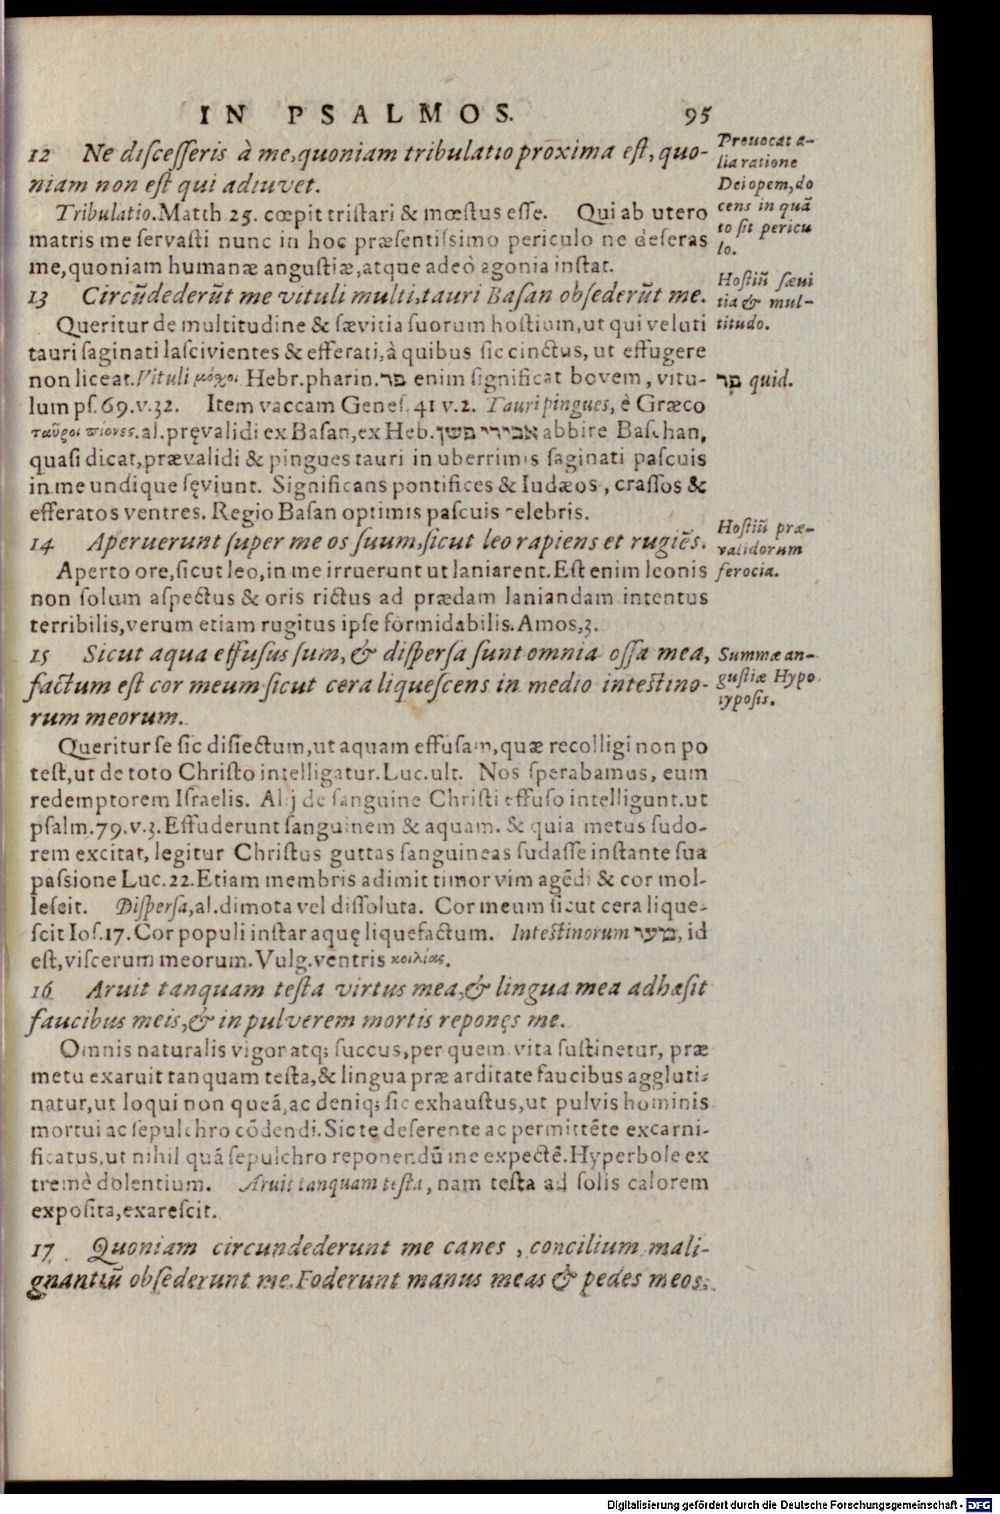 IN PSALMOS. 95
12 Ne discesseris à me, quoniam tribulatio proxima est, quo-
niam non est qui adiuvet.
Prouocat a-
lia ratione
Dei opem, do
cens in quã
to sit pericu
lo.
Tribulatio. Matth 25. cœpit tristari & mœstus esse. Qui ab utero
matris me servasti nunc in hoc præsentissimo periculo ne deseras
me, quoniam humanæ angustiæ, atque adeò agonia instat.
13 Circũdederũt me vituli multi, tauri Basan obsederũt me.
Hostiũ sævi
tia & mul-
titudo.
Queritur de multitudine & sævitia suorum hostium, ut qui veluti
tauri saginati lascivientes & efferati, à quibus sic cinctus, ut effugere
non liceat. Vituli μόχοι Hebr. pharin. פר enim significat bovem, vitu-
פר quid.
lum ps. 69. v. 32. Item vaccam Genes. 41 v. 2. Tauri pingues, è Græco
ταῦροι πίονες. al. pręvalidi ex Basan, ex Heb. אבירי בשן abbire Baschan,
quasi dicat, prævalidi & pingues tauri in uberrimis saginati pascuis
in me undique sęviunt. Significans pontifices & Iudæos, crassos &
efferatos ventres. Regio Basan optimis pascuis celebris.
14 Aperuerunt super me os suum, sicut leo rapiens et rugiẽs.
Hostiũ præ-
validorum
ferocia.
Aperto ore, sicut leo, in me irruerunt ut laniarent. Est enim leonis
non solum aspectus & oris rictus ad prædam laniandam intentus
terribilis, verum etiam rugitus ipse formidabilis. Amos, 3.
15 Sicut aqua effusus sum, & dispersa sunt omnia ossa mea,
factum est cor meum sicut cera liquescens in medio intestino-
rum meorum.
Summæ an-
gustiæ Hypo
typosis.
Queritur se sic disiectum, ut aquam effusam, quæ recolligi non po
test, ut de toto Christo intelligatur. Luc. ult. Nos sperabamus, eum
redemptorem Israelis. Alij de sanguine Christi effuso intelligunt. ut
psalm. 79. v. 3. Effuderunt sanguinem & aquam. & quia metus sudo-
rem excitat, legitur Christus guttas sanguineas sudasse instante sua
passione Luc. 22. Etiam membris adimit timor vim agẽdi & cor mol-
lescit. Dispersa, al. dimota vel dissoluta. Cor meum sicut cera lique-
scit Ios. 17. Cor populi instar aquę liquefactum. Intestinorum מער, id
est, viscerum meorum. Vulg. ventris κοιλίας.
16 Aruit tanquam testa virtus mea, & lingua mea adhæsit
faucibus meis, & in pulverem mortis reponęs me.
Omnis naturalis vigor atq; succus, per quem vita sustinetur, præ
metu exaruit tanquam testa, & lingua præ arditate faucibus aggluti-
natur, ut loqui non queã, ac deniq; sic exhaustus, ut pulvis hominis
mortui ac sepulchro cõdendi. Sic te deserente ac permittẽte excarni-
ficatus, ut nihil quã sepulchro reponendũ me expectẽ. Hyperbole ex
tremè dolentium. Aruit tanquam testa, nam testa ad solis calorem
exposita, exarescit.
17 Quoniam circundederunt me canes, concilium mali-
gnantiũ obsederunt me. Foderunt manus meas & pedes meos.
Digitalisierung gefördert durch die Deutsche Forschungsgemeinschaft - DFG